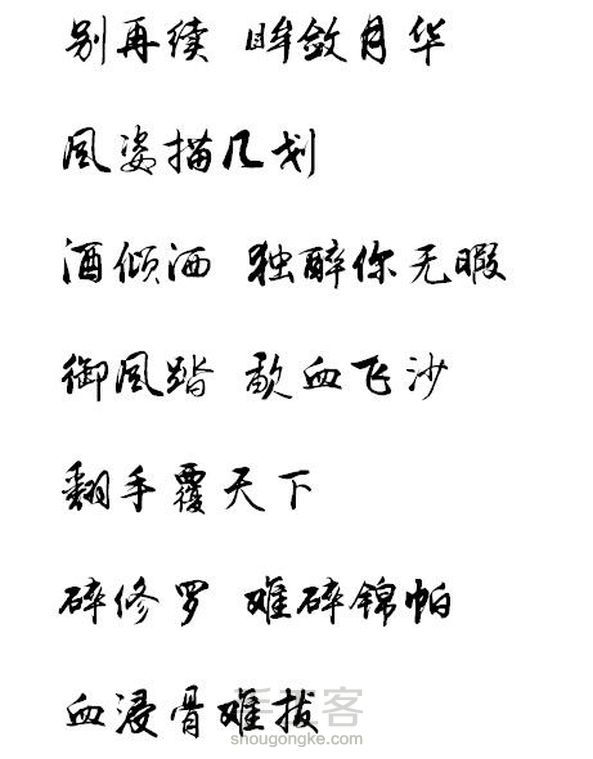 别再续 眸敛月华
风姿描几划
酒倾洒 独醉你无暇
御风踏 歃血飞沙
翻手覆天下
碎修罗 难碎锦帕
血浸骨难拔
手工客
shougongke.com